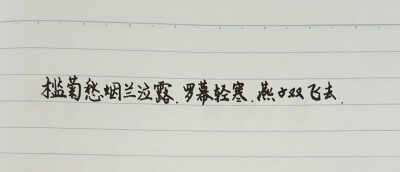 槛菊愁烟兰泣露.罗幕轻寒.燕子双飞去.